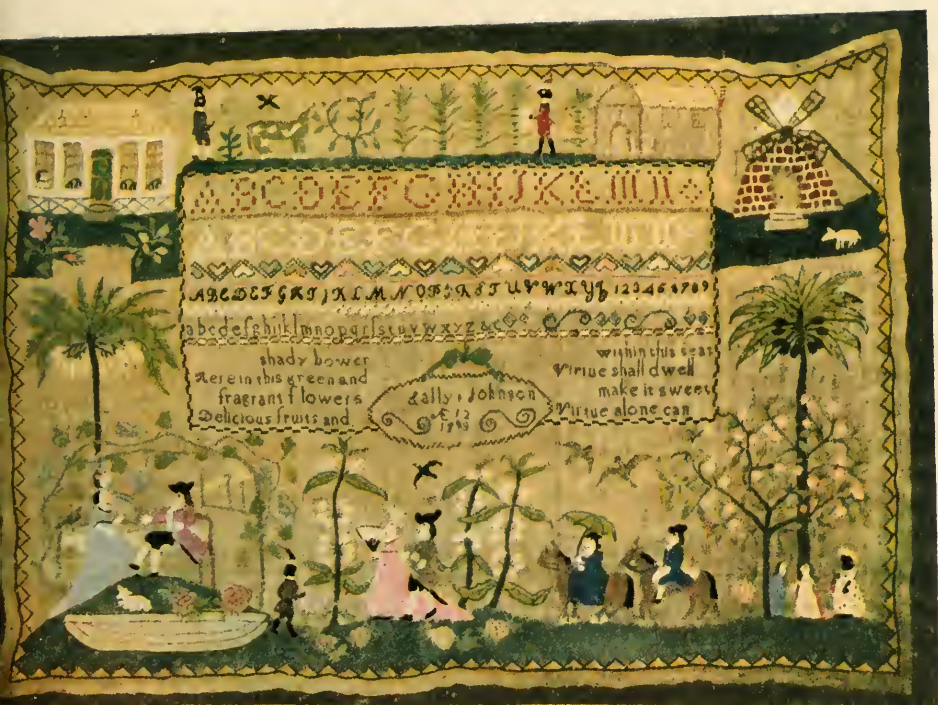 ABCDEFGHIJKLMN
ABCDEFGHIJKLMN
ABCDEFGHIJKLMNOPQRSTUVWXYZ 123456789
abcdefghijklmnopqrſstuvwxyz &c
shady bower
Here in this green and
fragrant flowers
Delicious fruits and
Sally Johnson
Æ 12
within this seat
Virtue shall dwell
make it sweet
Virtue alone can